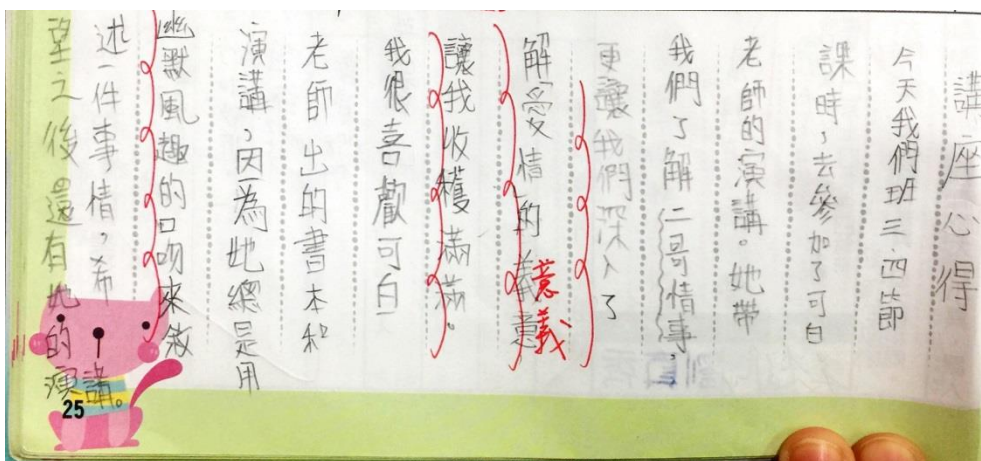 講座心得
今天我們班三、四節
課時，去參加了可白
老師的演講。她帶
我們了解二哥情事，
更讓我們深入了
解愛情的義意
意義
讓我收穫滿滿。
我很喜歡可白
老師出的書本和
演講，因為她總是用
幽默風趣的口吻來敘
述一件事情，希
望之後還有她的演講。
25